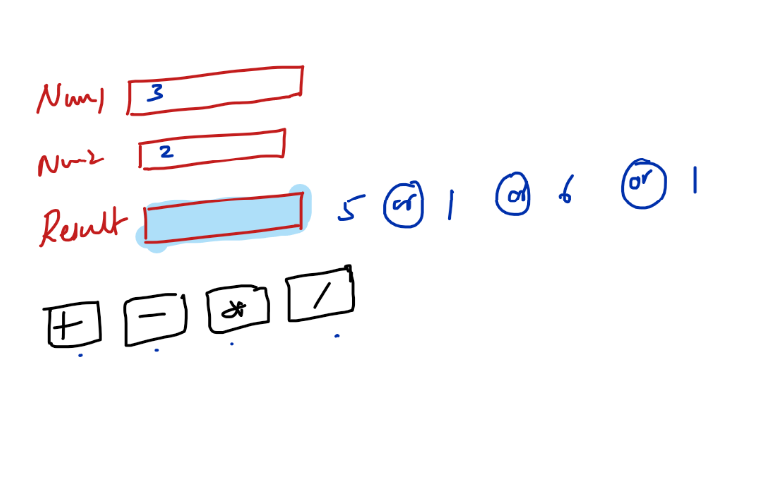 Num1 3
Num2 2
Result 5 or 1 or 6 or 1
+ - * /